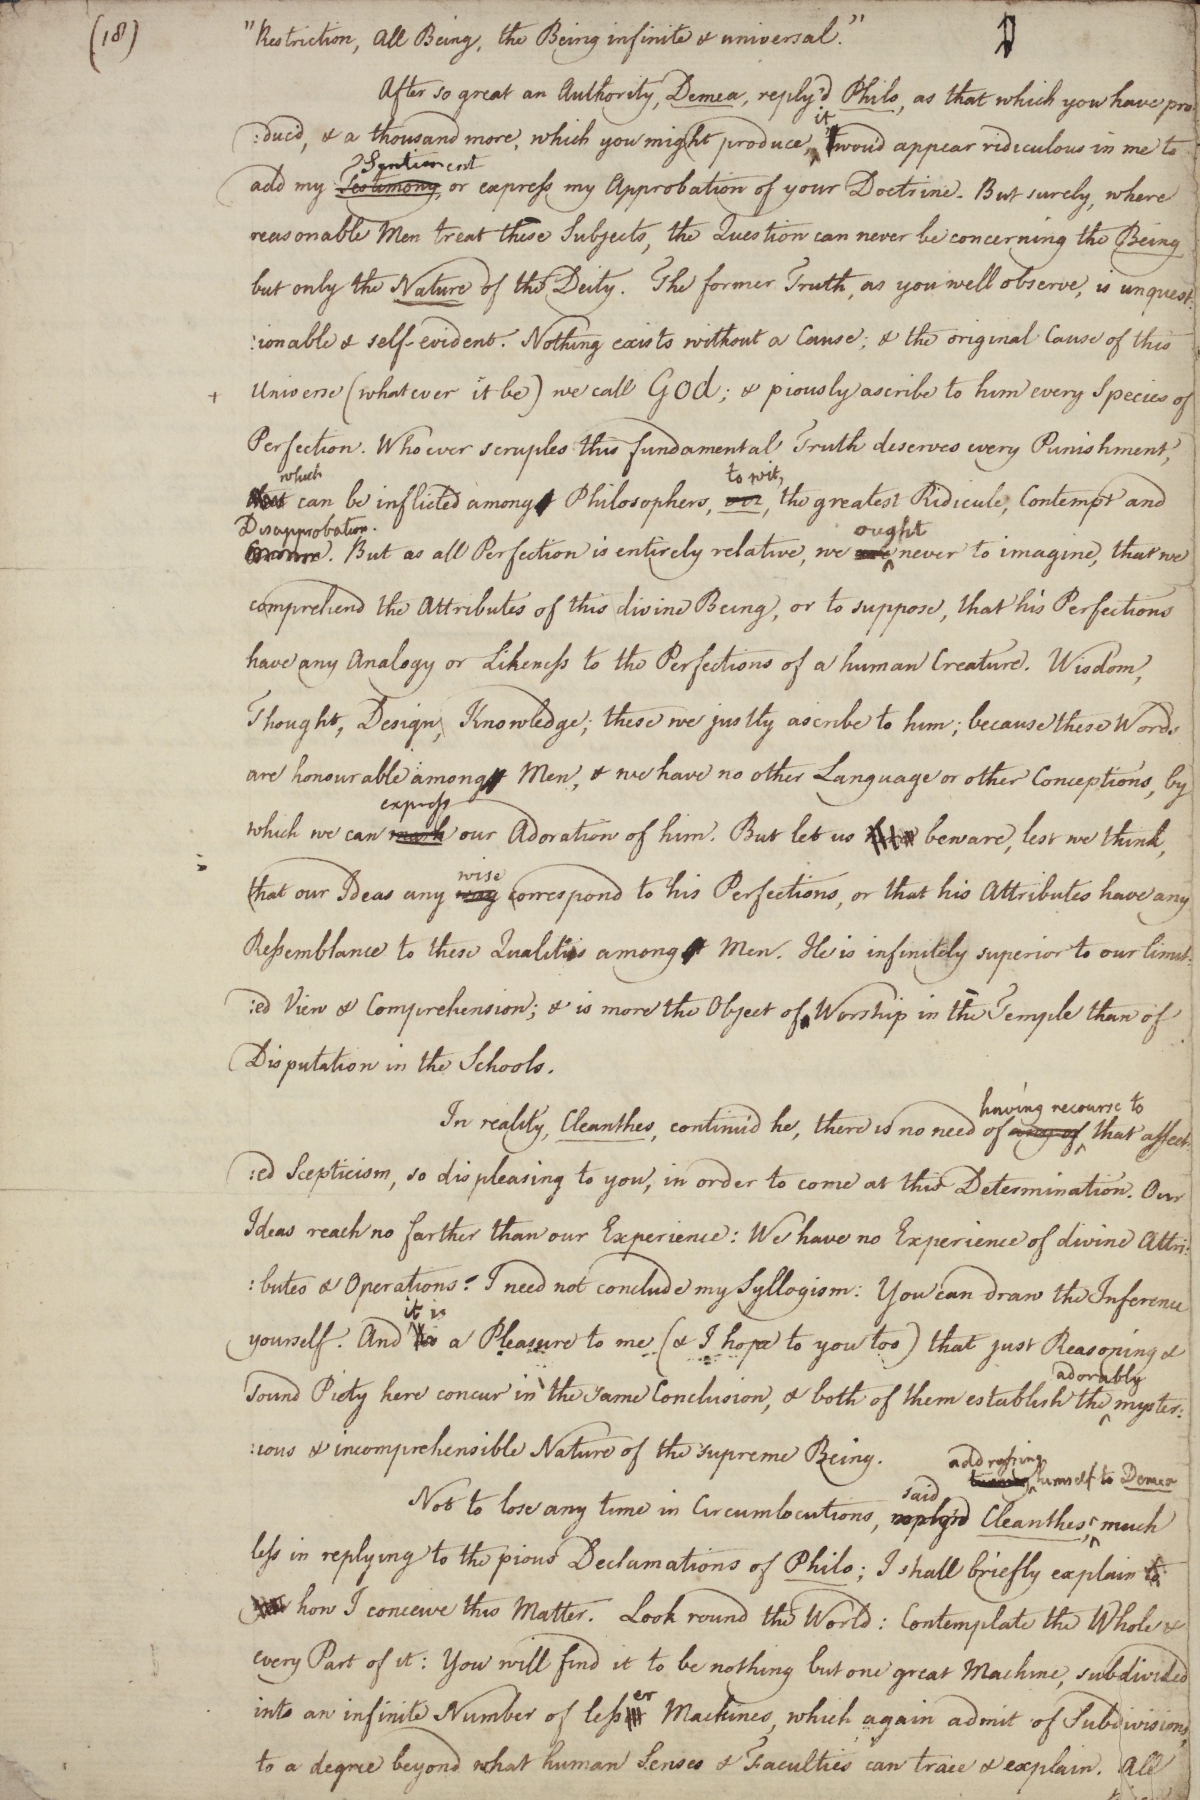 (18)
"Restriction, All Being, the Being infinite & universal."
After so great an Authority, Demea, reply'd Philo, as that which you have pro
:duc'd, & a thousand more, which you might produce, it wou'd appear ridiculous in me to
add my Sentiment or express my Approbation of your Doctrine. But surely, where
reasonable Men treat these Subjects, the Question can never be concerning the Being
but only the Nature of the Deity. The former Truth, as you well observe, is unquest:
:ionable & self-evident. Nothing exists without a Cause; & the original Cause of this
+ Universe (whatever it be) we call GOD; & piously ascribe to him every Species of
Perfection. Whoever scruples this fundamental Truth deserves every Punishment,
which can be inflicted among Philosophers, to wit, the greatest Ridicule, Contempt and
Disapprobation. But as all Perfection is entirely relative, we ought never to imagine, that we
comprehend the Attributes of this divine Being, or to suppose, that his Perfections
have any Analogy or Likeness to the Perfections of a human Creature. Wisdom,
Thought, Design, Knowledge; these we justly ascribe to him; because these Words
are honourable among Men, & we have no other Language or other Conceptions, by
which we can express our Adoration of him. But let us beware, lest we think,
that our Ideas any wise correspond to his Perfections, or that his Attributes have any
Ressemblance to these Qualities among Men. He is infinitely superior to our limit:
:ed View & Comprehension; & is more the Object of Worship in the Temple than of
Disputation in the Schools.
In reality, Cleanthes, continu'd he, there is no need of having recourse to that affect:
:ed Scepticism, so displeasing to you, in order to come at this Determination. Our
Ideas reach no farther than our Experience: We have no Experience of divine Attri:
:butes & Operations: I need not conclude my Syllogism: You can draw the Inference
yourself. And it is a Pleasure to me (& I hope to you too) that just Reasoning &
sound Piety here concur in the same Conclusion, & both of them establish the adorably myster:
:ious & incomprehensible Nature of the supreme Being.
Not to lose any time in Circumlocutions, said Cleanthes, addressing himself to Demea much
less in replying to the pious Declamations of Philo; I shall briefly explain
how I conceive this Matter. Look round the World: Contemplate the Whole &
every Part of it: You will find it to be nothing but one great Machine, subdivided
into an infinite Number of lesser Machines, which again admit of Subdivisions,
to a degree beyond what human Senses & Faculties can trace & explain. All